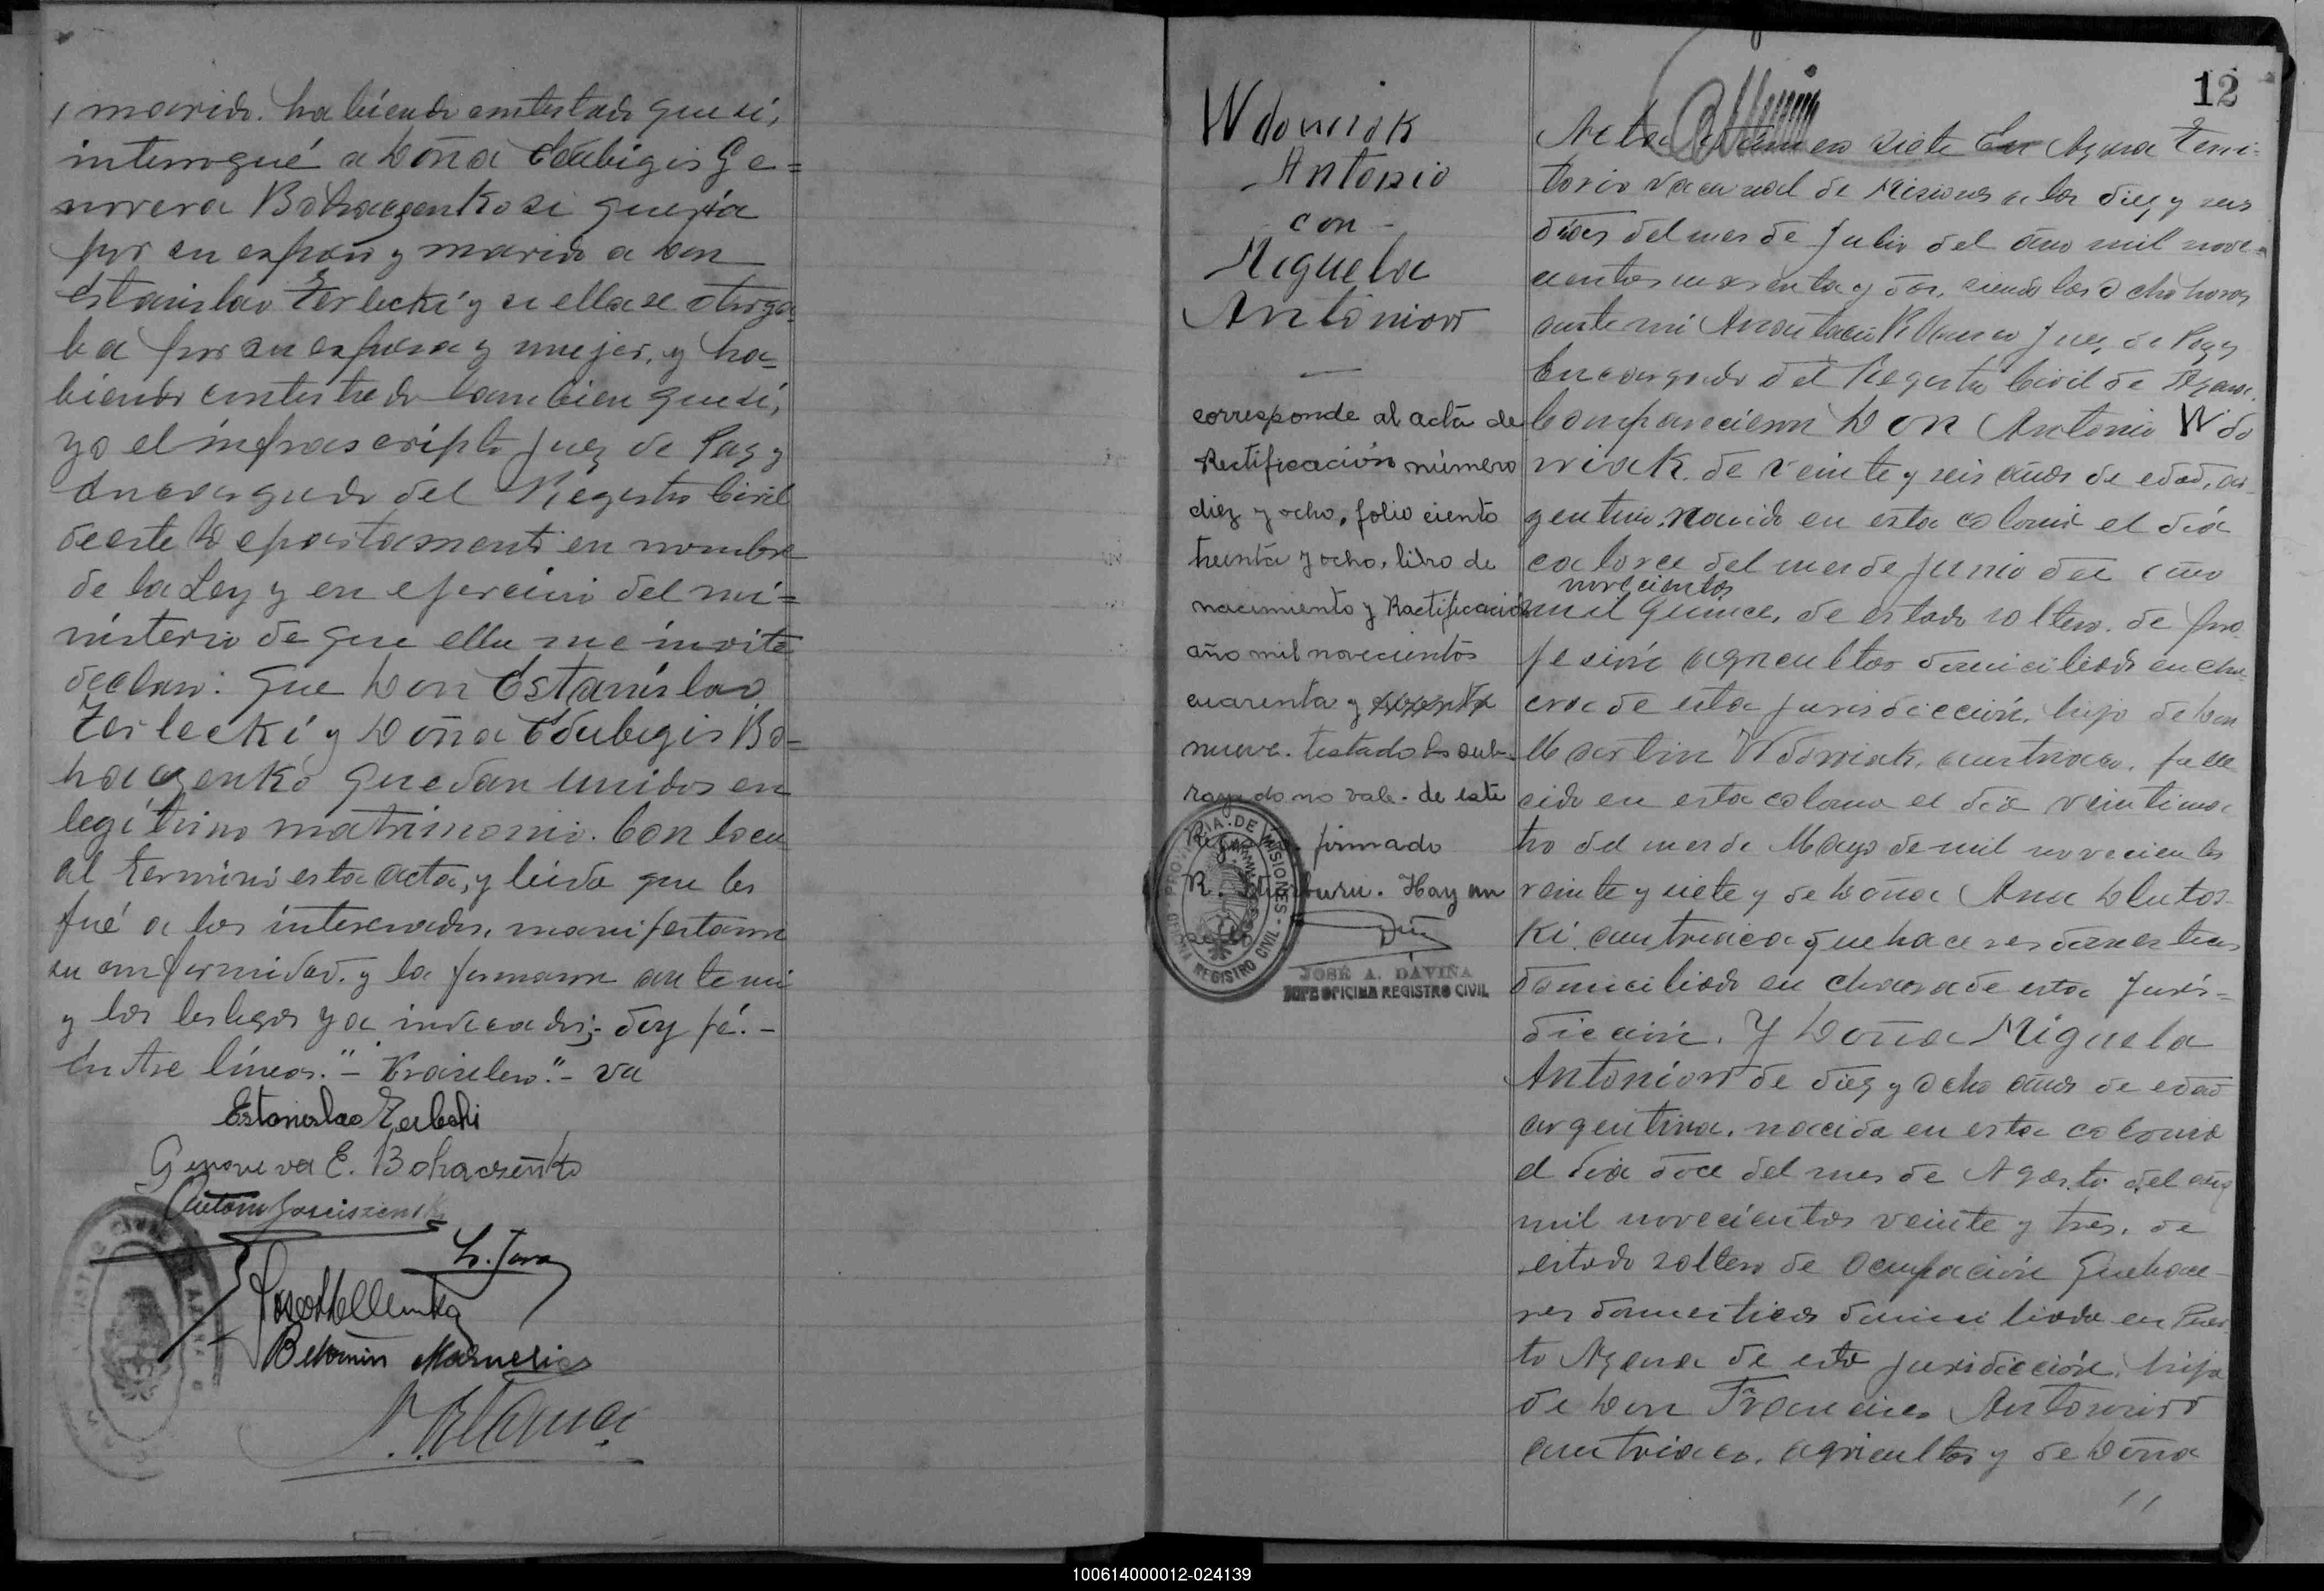 marido. habiendo contestado que sí,
interrogué a Doña Edubigis Ge=
noveva Bohaczenko si quería
por su esposo y marido a Don
Estanislao Zerlecki y si ella se otorga
ba por su esposa y mujer, y ha=
biendo contestado tambien que sí,
yo el infrascripto Juez de Paz y
Encargado del Registro Civil
de este Departamento en nombre
de la Ley y en ejercicio del mi=
nisterio de que ella me inviste
declaro: que Don Estanislao
Zerlecki y Doña Edubigis Bo=
haczenko quedan unidos en
legítimo matrimonio. Con lo cu
al terminó esta acta, y leida que les
fué a los interesados, manifestaron
su conformidad. y la firmaron ante mi
y los testigos ya indicados; doy fé.-
Entre líneas."- Brasilero."- va
Estanislao Zerlecki
Genoveva E. Bohaczenko
12
Wdowiak
Antonio
con-
Miguela
Antoniow
corresponde al acta de
Rectificación número
diez y ocho, folio ciento
treinta y ocho, libro de
nacimiento y Rectificación
año mil novecientos
cuarenta y
nueve. testado lo sub-
rayado no vale. de este
Reg. firmado
R. Hay un
PROVINCIA DE MISIONES
REGISTRO CIVIL
JOSÉ A. DAVIÑA
JEFE OFICINA REGISTRO CIVIL
Acta número siete En Azara Terri-
torio Nacional de Misiones a los diez y seis
dias del mes de Julio del año mil nove-
cientos cuarenta y dos, siendo las ocho horas
ante mi Juez de Paz y
Encargado del Registro Civil de Azara,
Comparecieron Don Antonio Wdo
wiak. de veinte y seis años de edad, ar-
gentino, nacido en esta colonia el día
catorce del mes de Junio del año
novecientos
mil quince, de estado soltero. de pro
fesión agricultor domiciliado en cha
cra de esta jurisdicción, hijo de Don
Martin Wdowiak, austriaco, falle
cido en esta colonia el dia veinticua
tro del mes de Mayo de mil novecientos
veinte y siete y de Doña Ana Dlutos-
ki, austriaca quehaceres domesticos
domiciliado en chacra de esta Juris=
dicción. Y Doña Miguela
Antoniow de diez y ocho años de edad
argentina, nacida en esta colonia
el dia doce del mes de Agosto del año
mil novecientos veinte y tres, de
estado soltero de ocupación quehace-
res domesticos domiciliada en Puer
to Azara de esta jurisdicción, hija
de Don Francisco Antoniow
austriaco, agricultor y de Doña
100614000012-024139